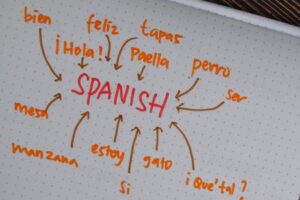 bien
feliz
tapas
¡Hola!
Paella
perro
SPANISH
ser
mesa
manzana
estoy
gato
Si
¡Que'tal?